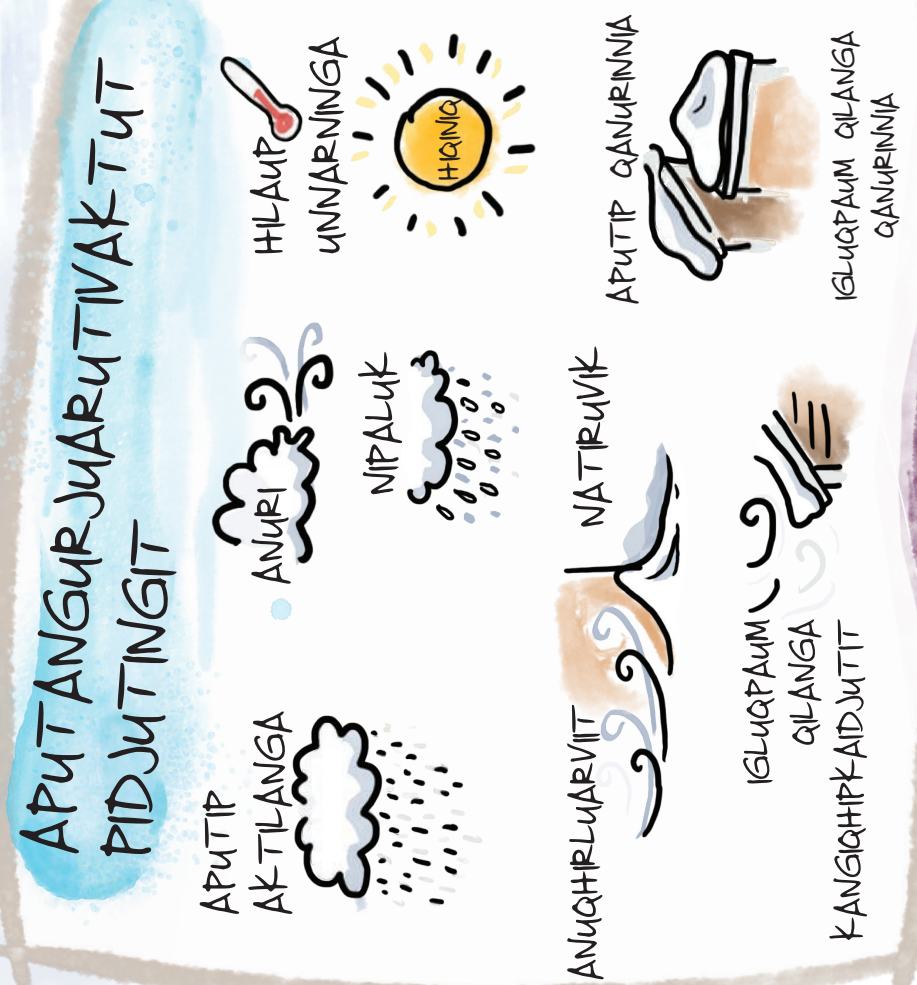 APUTANGURJUARUTIVAKTUT
PIDJUTINGIT
APUTIP
AKTILANGA
ANURI
NIPALUK
HILAUP
UNNARNINGA
HIQINIQ
ANUQHIRLUARVIIT
NATIRUVIK
APUTIP QANURINNIA
IGLUQPAUM
QILANGA
KANGIQHIPKAIDJUTIT
IGLUQPAUM QILANGA
QANURINNIA